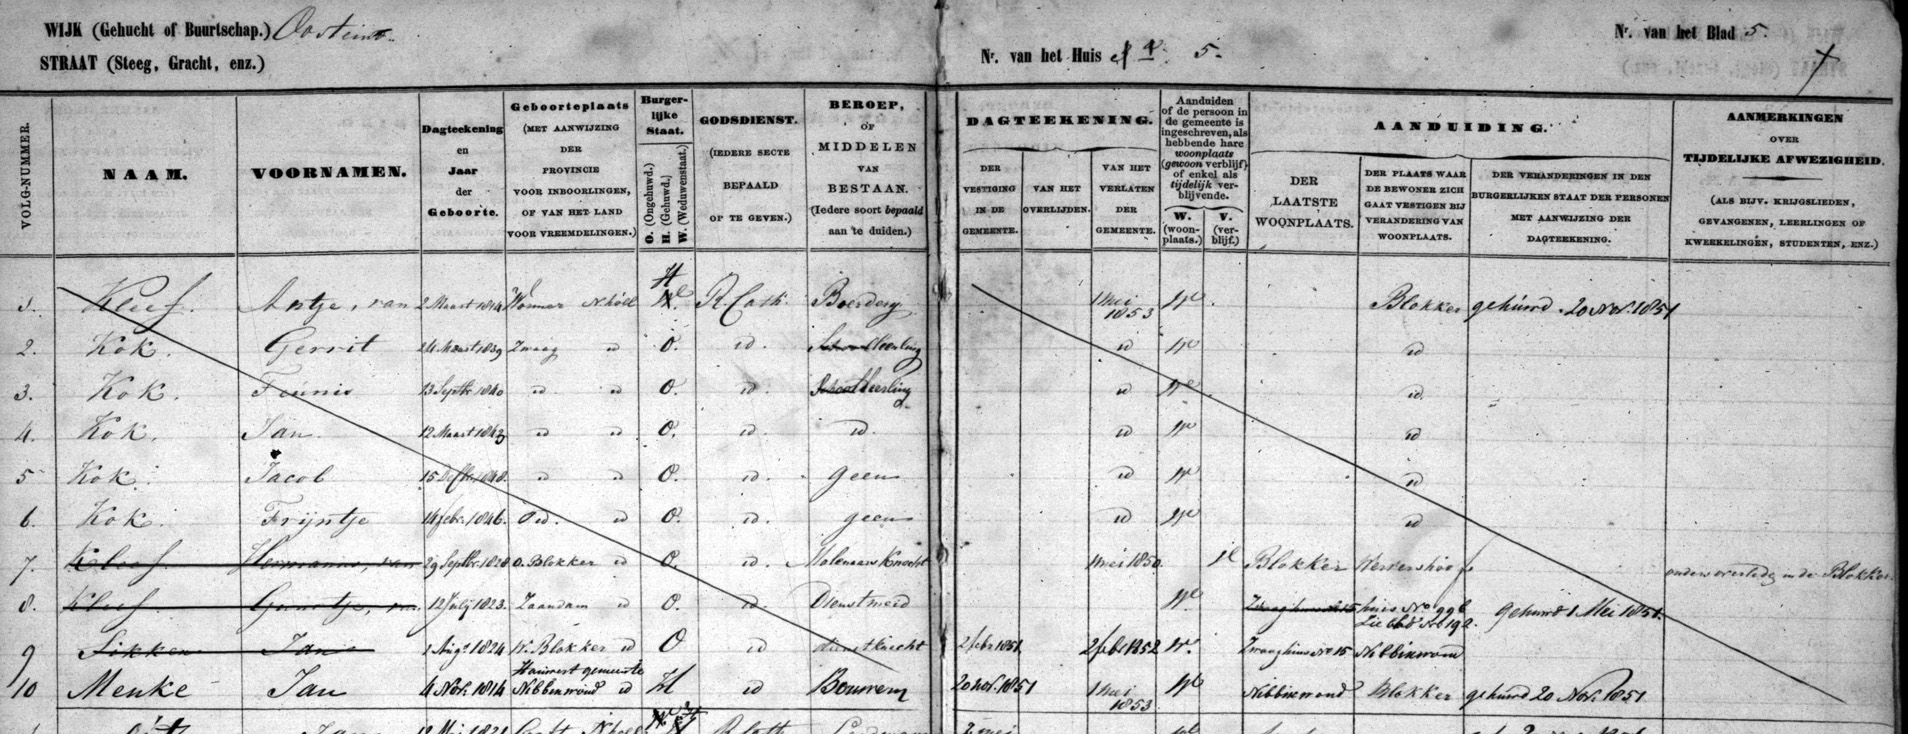 WIJK (Gehucht of Buurtschap.) Oosteinde
Nr. van het Blad 5.
STRAAT (Steeg, Gracht, enz.)
Nr. van het Huis 5.
VOLG-NUMMER.
NAAM.
VOORNAMEN.
Dagteekening
en
Jaar
der
Geboorte.
Geboorteplaats
(MET AANWIJZING
DER
PROVINCIE
VOOR INBOORLINGEN,
OF VAN HET LAND
VOOR VREEMDELINGEN.)
Burger-
lijke
Staat.
O. (Ongehuwd.)
H. (Gehuwd.)
W. (Weduwenstaat.)
GODSDIENST.
(IEDERE SECTE
BEPAALD
OP TE GEVEN.)
BEROEP,
OF
MIDDELEN
VAN
BESTAAN.
(Iedere soort bepaald
aan te duiden.)
DAGTEEKENING.
DER
VESTIGING
IN DE
GEMEENTE.
VAN HET
OVERLIJDEN.
VAN HET
VERLATEN
DER
GEMEENTE.
Aanduiden
of de persoon in
de gemeente is
ingeschreven, als
hebbende hare
woonplaats
(gewoon verblijf)
of enkel als
tijdelijk ver-
blijvende.
W.
(woon-
plaats.)
V.
(ver-
blijf.)
AANDUIDING.
DER
LAATSTE
WOONPLAATS.
DER PLAATS WAAR
DE BEWONER ZICH
GAAT VESTIGEN BIJ
VERANDERING VAN
WOONPLAATS.
DER VERANDERINGEN IN DEN
BURGERLIJKEN STAAT DER PERSONEN
MET AANWIJZING DER
DAGTEEKENING.
AANMERKINGEN
OVER
TIJDELIJKE AFWEZIGHEID.
(ALS BIJV. KRIJGSLIEDEN,
GEVANGENEN, LEERLINGEN OF
KWEEKELINGEN, STUDENTEN, ENZ.)
1. Kleef. Antje, van 2 Maart 1814 Wormer Nholl H R. Cath. Boerdery 1 Mei 1853 W Blokker gehuwd 20 Nov. 1851
2. Kok. Gerrit 24 Maart 1839 Zwaag id O. id. id W id
3. Kok. Teunis 13 Septbr. 1840 id id O. id. Schoolleerling id W id.
4. Kok. Jan. 12 Maart 1843 id id O. id. id. id W id
5 Kok. Jacob id id O. id. geen id W id
6. Kok. Frijntje 14 febr. 1846. id. id O. id. geen id W id
7. Kleef. Hermanus, van 29 Septbr. 1828 O. Blokker id O. id. Molenaars Knecht 1 Mei 1850. V Blokker in de Blokker
8. Kleef. van 12 Julij 1823. Zaandam id O. id. Dienstmeid W. gehuwd 1 Mei 1851.
9 Jan 1 Augs 1824 W. Blokker id O id dienstknecht 2 febr 1851 2 febr 1852 W. Zwaag huis No 15 Nibbixwoud
10 Menke Jan 4 Nov. 1814 Hauwert gemeente Nibbixwoud id H id Bouwern 20 nov. 1851 1 Mei 1853 W Nibbixwoud Blokker gehuwd 20 Nov. 1851